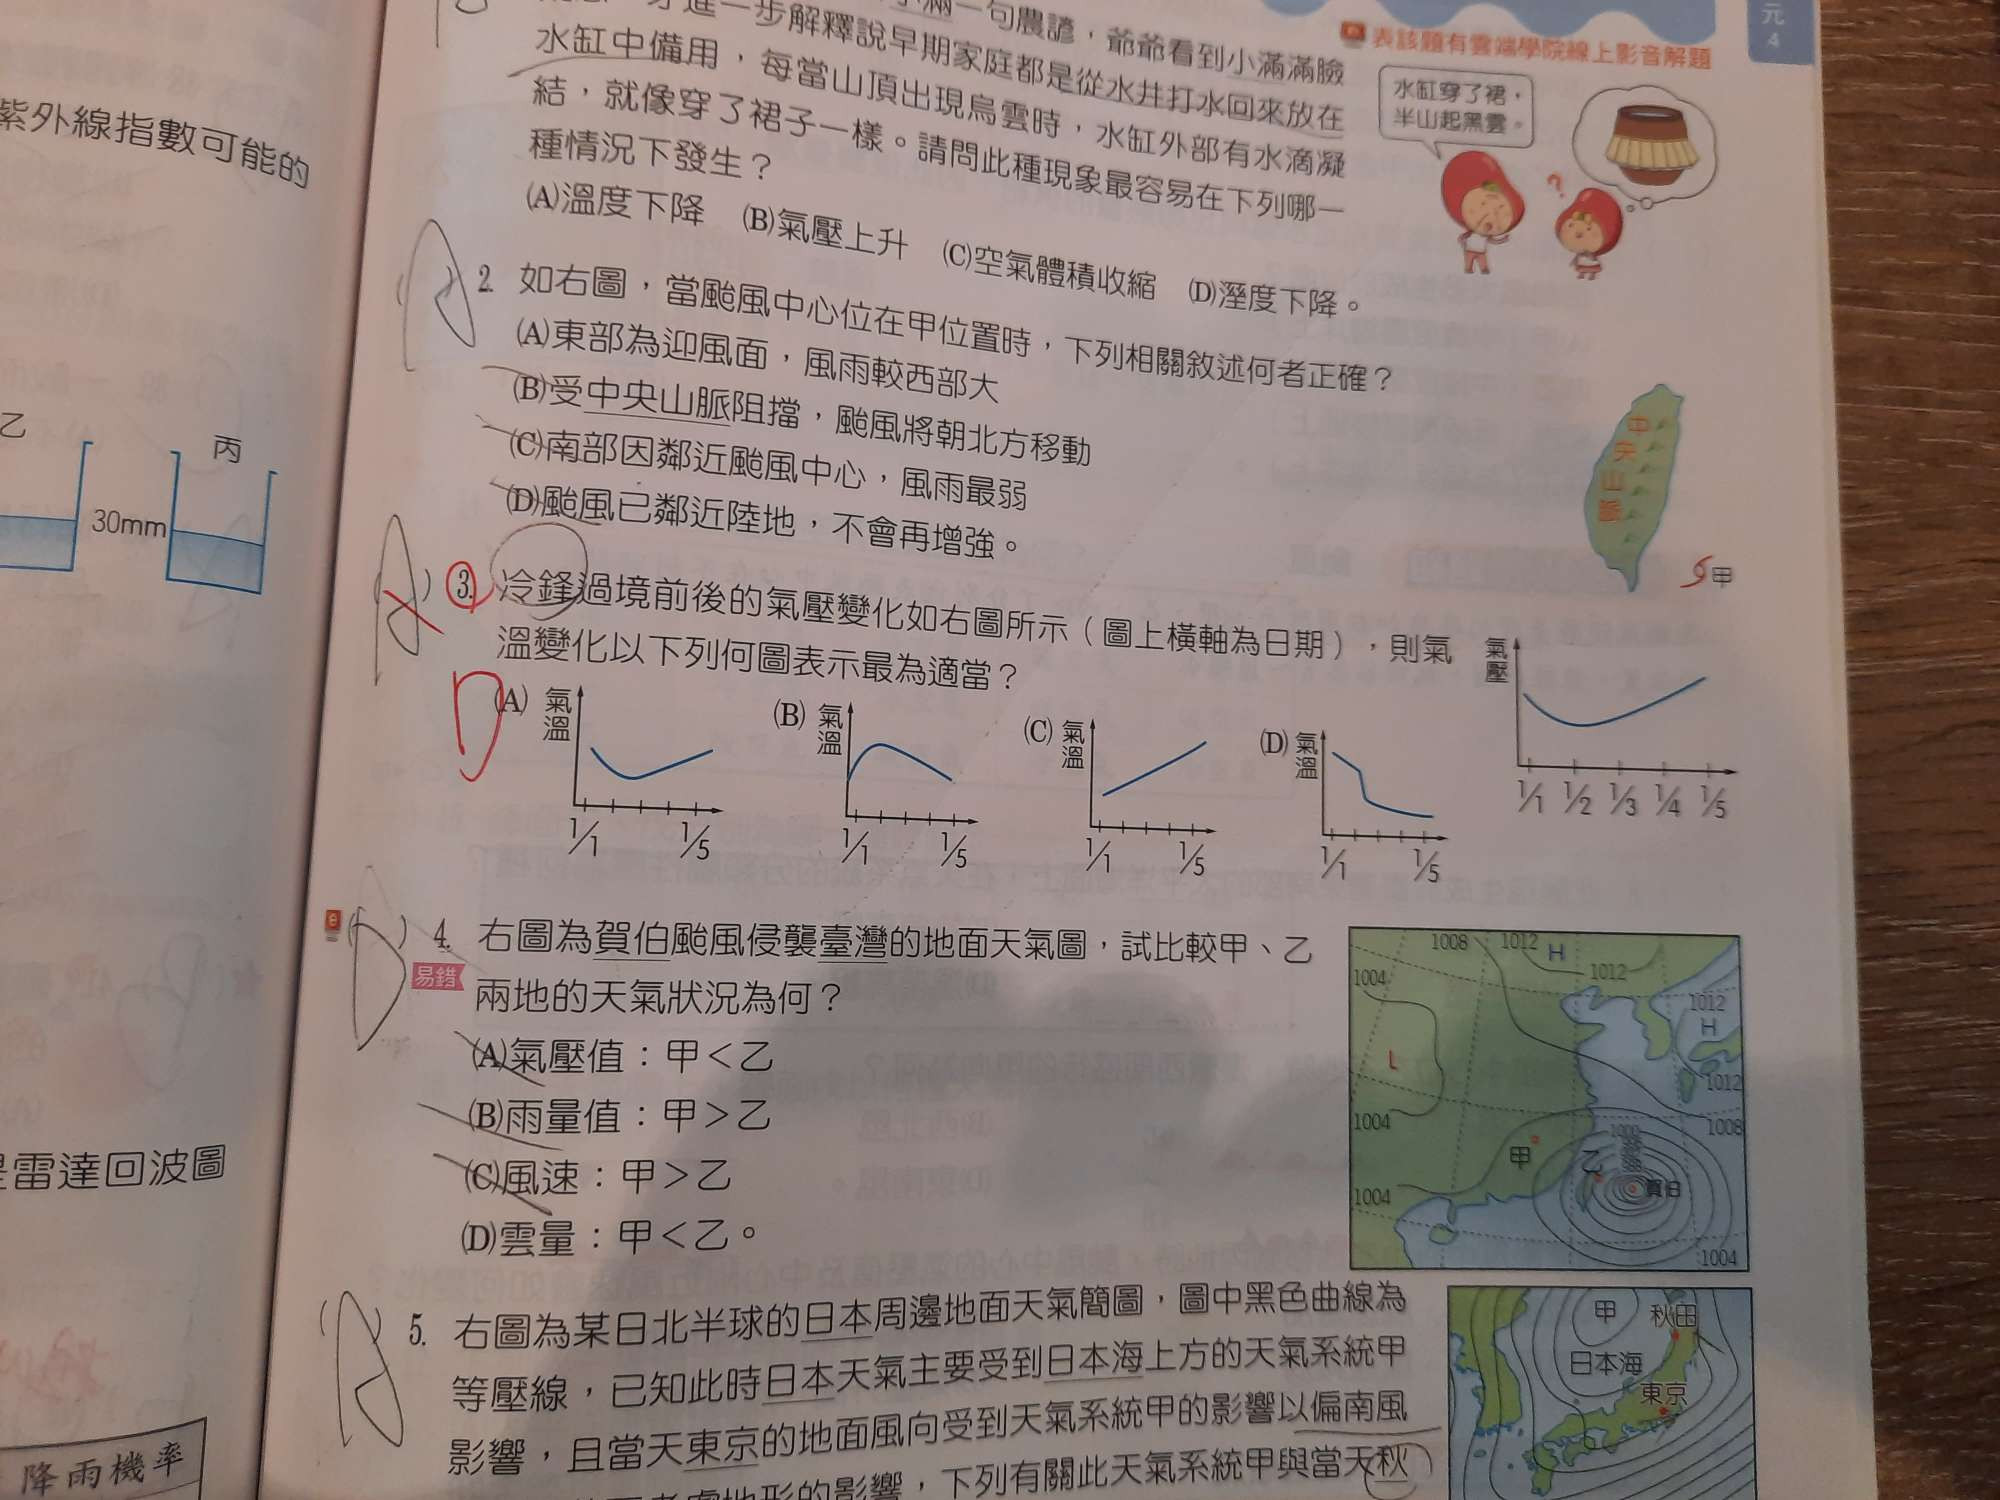 元
4
表該題有雲端學院線上影音解題
小滿一句農諺，爺爺看到小滿滿臉
才進一步解釋說早期家庭都是從水井打水回來放在
水缸中備用，每當山頂出現烏雲時，水缸外部有水滴凝
結，就像穿了裙子一樣。請問此種現象最容易在下列哪一
種情況下發生？
(A)溫度下降 (B)氣壓上升 (C)空氣體積收縮 (D)溼度下降。
水缸穿了裙，
半山起黑雲。
2. 如右圖，當颱風中心位在甲位置時，下列相關敘述何者正確？
(A)東部為迎風面，風雨較西部大
(B)受中央山脈阻擋，颱風將朝北方移動
(C)南部因鄰近颱風中心，風雨最弱
(D)颱風已鄰近陸地，不會再增強。
中央山脈
甲
3. 冷鋒過境前後的氣壓變化如右圖所示（圖上橫軸為日期），則氣
溫變化以下列何圖表示最為適當？
氣壓
1/1 1/2 1/3 1/4 1/5
D
(A) 氣溫 1/1 1/5
(B) 氣溫 1/1 1/5
(C) 氣溫 1/1 1/5
(D) 氣溫 1/1 1/5
D
4. 右圖為賀伯颱風侵襲臺灣的地面天氣圖，試比較甲、乙
易錯
兩地的天氣狀況為何？
(A)氣壓值：甲＜乙
(B)雨量值：甲＞乙
(C)風速：甲＞乙
(D)雲量：甲＜乙。
1008 1012 H
1004 1012
1012
H
L
1012
1004 1000 1008
甲 乙
1004 賀伯
1004
5. 右圖為某日北半球的日本周邊地面天氣簡圖，圖中黑色曲線為
等壓線，已知此時日本天氣主要受到日本海上方的天氣系統甲
影響，且當天東京的地面風向受到天氣系統甲的影響以偏南風
考慮地形的影響，下列有關此天氣系統甲與當天秋
甲 秋田
日本海
東京
紫外線指數可能的
乙
丙
30mm
雷達回波圖
降雨機率